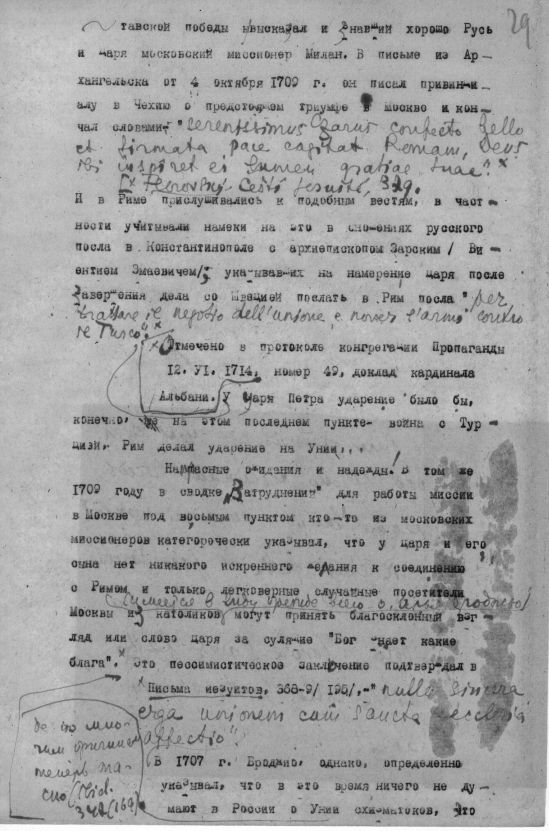 29
тавской победы высказал и знавший хорошо Русь
и царя московский миссионер Милан. В письме из Ар-
хангельска от 4 октября 1709 г. он писал привинци-
алу в Чехию о предстоящем триумфе в Москве и кон-
чал словами: "serenissimus Czarus confecto bello
et firmata pace cogitat Romam, Deus
ibi inspiret ei lumen gratiae suae". x
x Florovský, Čeští jesuité, 329.
И в Риме прислушивались к подобным вестям, в част-
ности учитывали намеки на это в сношениях русского
посла в Константинополе с архиепископом Зарским/ Ви-
ентием Змаевичем/, указывавших на намерение царя после
завершения дела со Швецией послать в Рим посла "per
trattare il negotio dell'unione e muover l'armi contro
il Turco". x
x Отмечено в протоколе конгрегации Пропаганды
12. VI. 1714, номер 49, доклад кардинала
Альбани. У царя Петра ударение было бы,
конечно, на этом последнем пункте- война с Тур-
цией, Рим делал ударение на Унии...
Напрасные ожидания и надежды! В том же
1709 году в сводке "Затруднений" для работы миссии
в Москве под восьмым пунктом кто-то из московских
миссионеров категорочески указывал, что у царя и его
сына нет никакого искреннего желания к соединению
с Римом, и только легковерные случайные посетители
(имеется в виду прежде всего о.
Москвы из католиков могут принять благосклонный взг-
ляд или слово царя за сулящие "Бог знает какие
блага". x Это пессимистическое заключение подтвердал в
x Письма иезуитов, 368-9/ 195/,-" nulla sincera
erga unionem cum Sancta ecclesia
affectio".
В 1707 г. Броджио, однако, определенно
указывал, что в это время ничего не ду-
мают в России о Унии схизматоков, что
де по мно-
гим причинам
теперь
(Ibid.
342 (169).